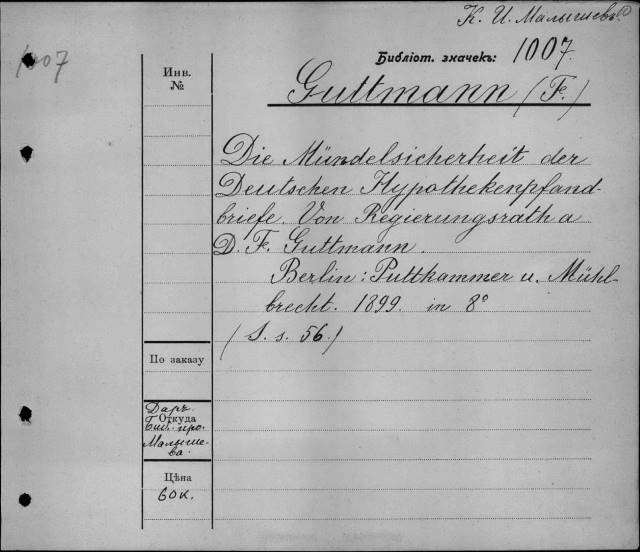 К. И. Малышевъ.
1007
Библіот. значекъ: 1007.
Инв.
№
Guttmann (F.)
Die Mündelsicherheit der
Deutschen Hypothekenpfand-
briefe. Von Regierungsrath a
D. F. Guttmann.
Berlin: Puttkammer u. Mühl-
brecht. 1899. in 8°
(S. s. 56.)
По заказу
Откуда
Даръ
Биб. про.
Малыше-
ва.
Цѣна
60к.